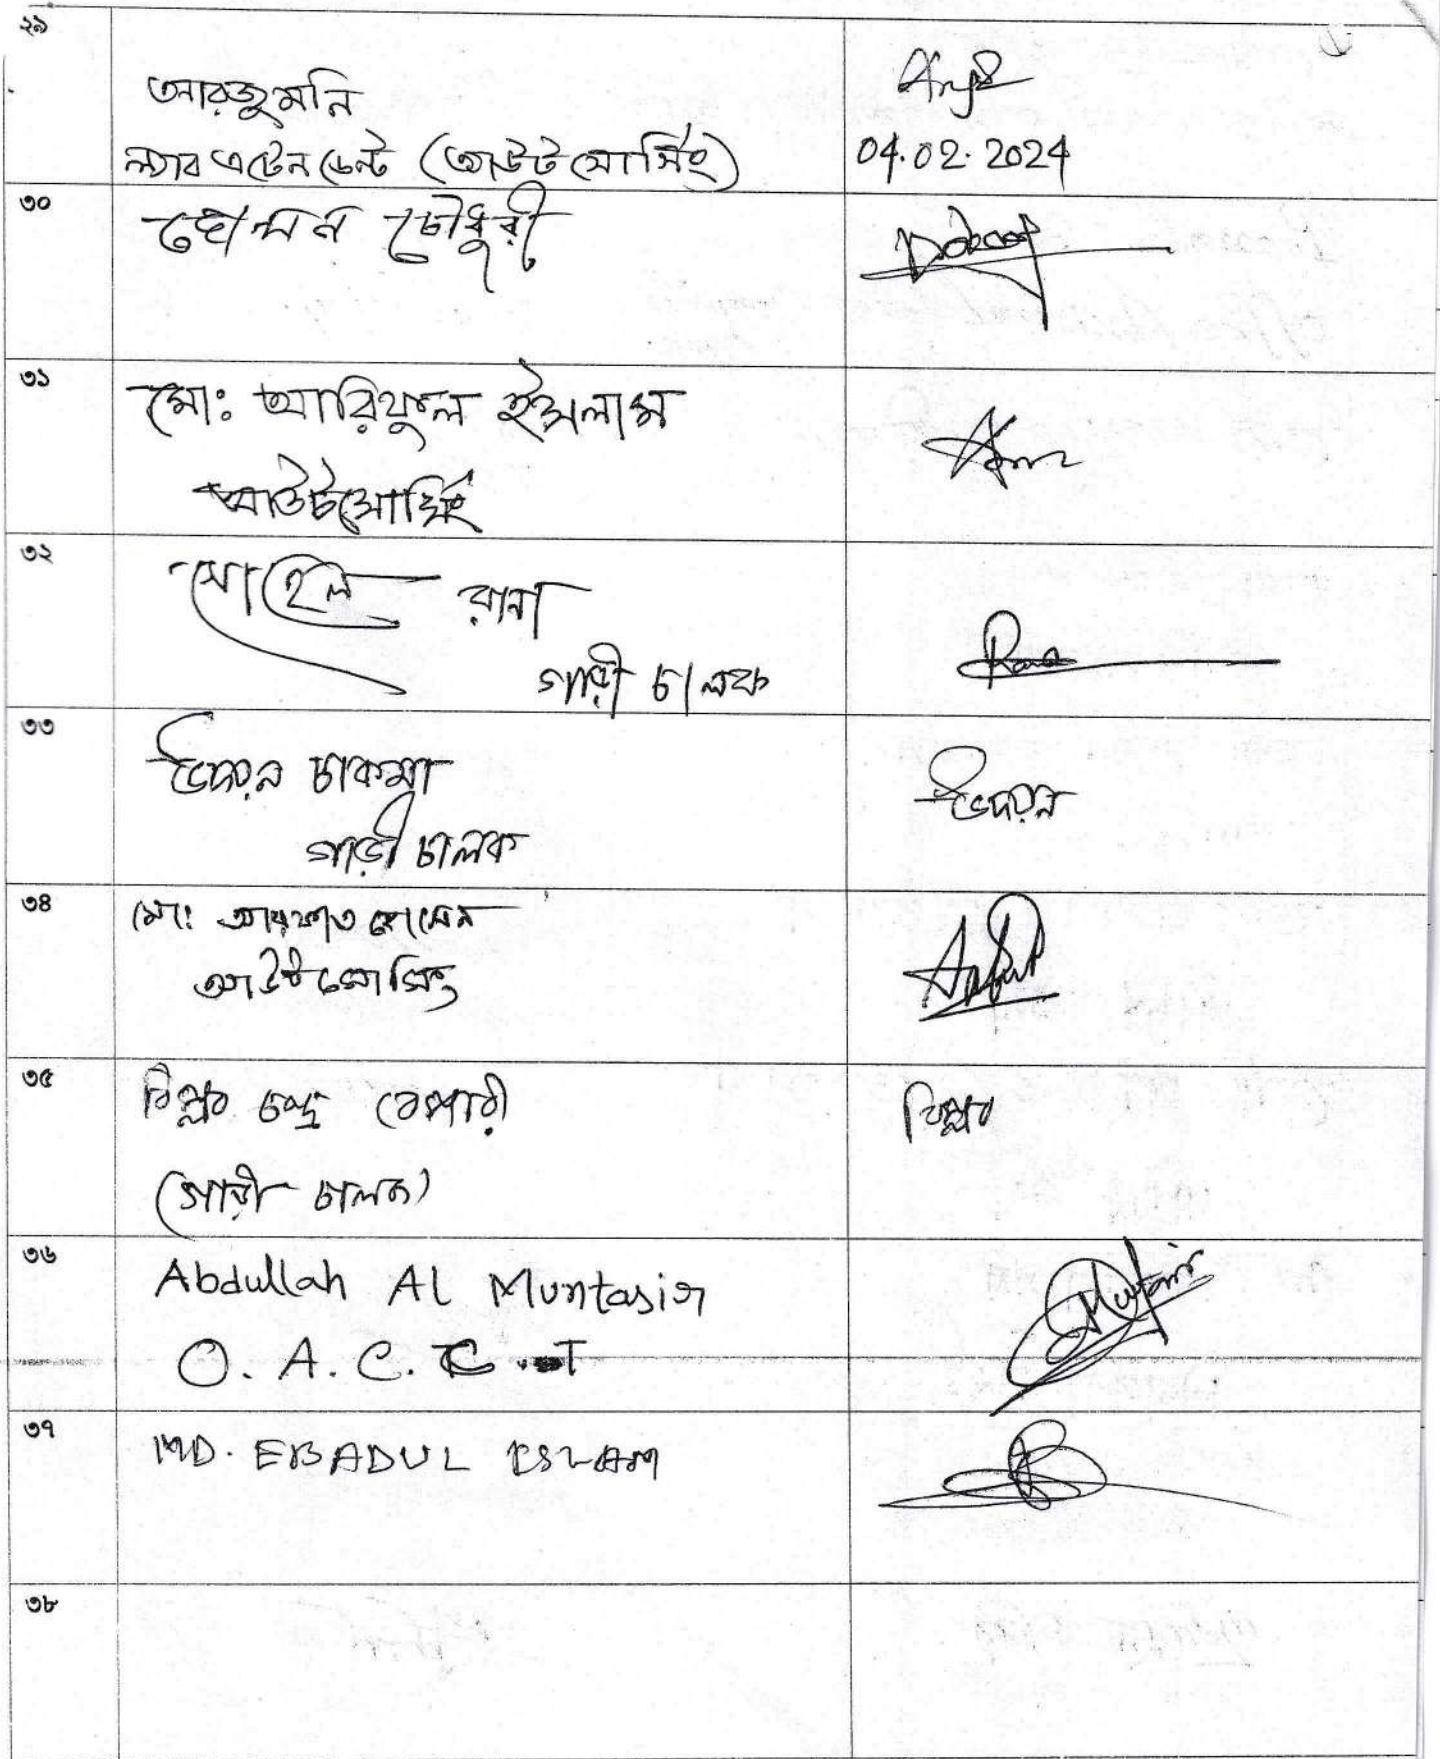 ২৯
আরজু মনি
ল্যাব এটেনডেন্ট (আউটসোর্সিং)
04.02.2024
৩০
চৌধুরী
৩১
মোঃ আরিফুল ইসলাম
আউটসোর্সিং
৩২
সোহেল রানা
গাড়ী চালক
Rana
৩৩
উদয়ন চাকমা
উদয়ন
গাড়ী চালক
৩৪
মোঃ আরফাত হোসেন
আউটসোর্সিং
৩৫
বিপ্লব চন্দ্র বেপারী
বিপ্লব
(গাড়ী চালক)
৩৬
Abdullah Al Muntasir
O. A. C. C. T
৩৭
MD. EBADUL ISLAM
৩৮